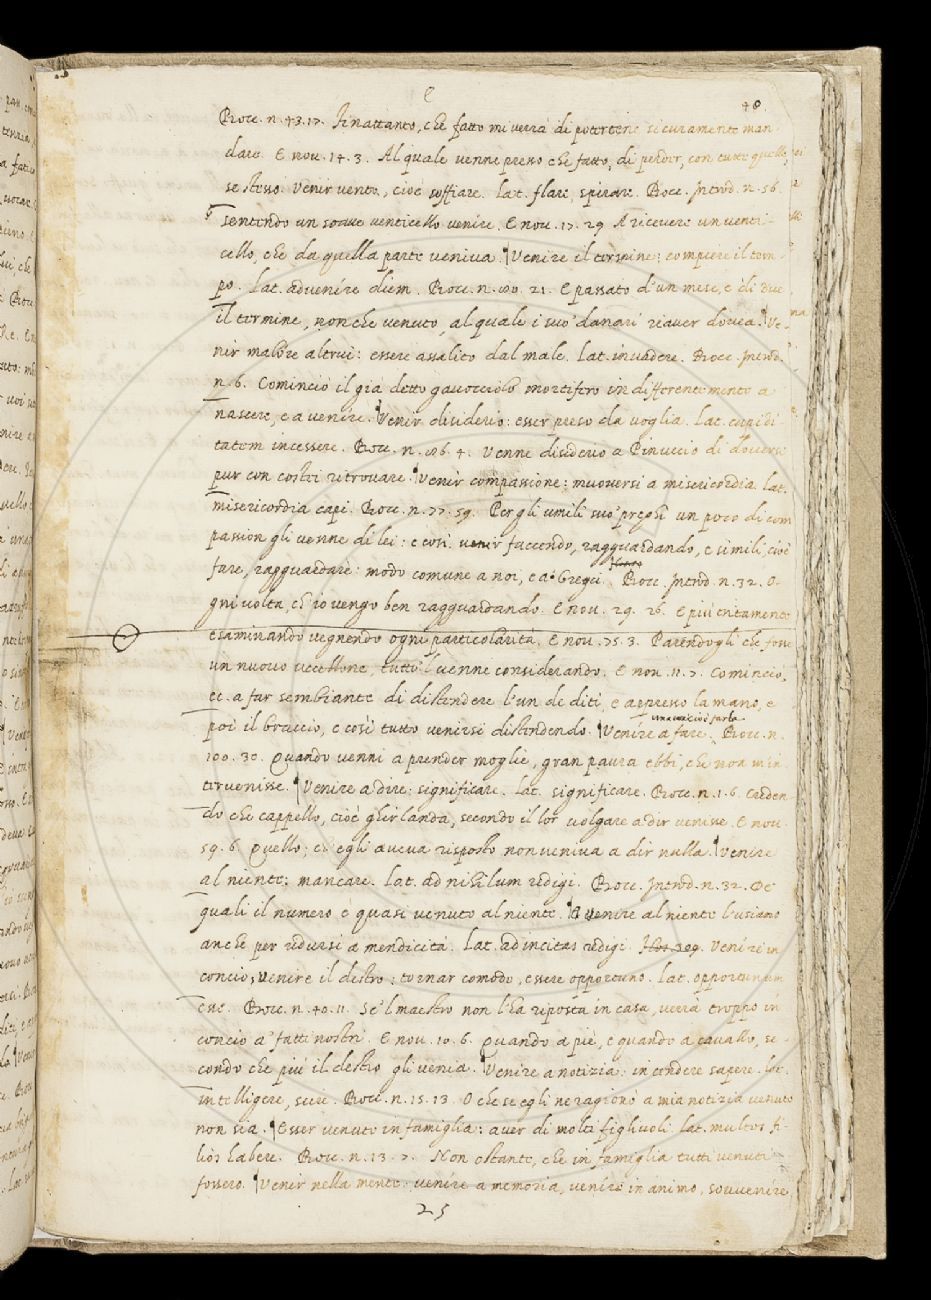 C
48
Bocc. n. 43. 17. Inattanto, che fatto mi verrà di potertene sicuramente man
dare. E nov. 14. 3. Al quale venne presso che fatto, di perder, con tutto quelle,
se stesso. Venir vento, cioè soffiare. Lat. flare, spirare. Bocc. Introd. n. 56.
sentendo un soave venticello venire. E nov. 17. 29 A ricevere un venti-
cello, che da quella parte veniva. Venire il termine: compiere il tem
po. Lat. advenire diem. Bocc. n. 80. 21. E passato d'un mese, e di due
il termine, non che venuto, al quale i suo' danari riaver dovea. Ve-
nir malore altrui: essere assalito dal male. Lat. invadere. Bocc. Introd.
n. 6. Cominciò il già detto gavocciolo mortifero indifferentemente a
nascere, e a venire. Venir disiderio: esser preso da voglia. Lat. cupidi-
tatem incessere. Bocc. n. 86. 4. Venne disiderio a Pinuccio di doversi
pur con costei ritrovare. Venir compassione: muoversi a misericordia. Lat.
misericordia capi. Bocc. n. 77. 59. Per gli umili suo' preghi un poco di com
passion gli venne di lei: e così venir faccendo, ragguardando, e simili, cioè
fare, ragguardare: modo comune a noi, e a' Greci. Bocc. Introd. n. 32. O-
gni volta, ch' io vengo ben ragguardando. E nov. 29. 26. E più tritamente
esaminando vegnendo ogni particolarità. E nov. 75. 3. Parendogli che fosse
un nuovo uccellone, tutto 'l venne considerando. E nov. 11. 7. Cominciò,
ec. a far sembiante di distendere l'un de diti, e appresso la mano, e
poi il braccio, e così tutto venirsi distendendo. Venire a fare. Bocc. n.
100. 30. Quando venni a prender moglie, gran paura ebbi, che non m'in
tervenisse. Venire a dire: significare. Lat. significare. Bocc. n. 1. 6. Creden-
do che cappello, cioè ghirlanda, secondo il lor volgare a dir venisse. E nov.
59. 6. Quello, ch' egli aveva risposto non veniva a dir nulla. Venire
al niente: mancare. Lat. ad nihilum redigi. Bocc. Introd. n. 32. De'
quali il numero è quasi venuto al niente. E venire al niente l'usiamo
anche per ridursi a mendicità. Lat. ad incitas redigi. Venire in
concio, venire il destro: tornar comodo, essere opportuno. Lat. opportunum
esse. Bocc. n. 40. 11. Se 'l maestro non l'ha riposta in casa, verrà troppo in
concio a' fatti nostri. E nov. 10. 6. Quando a piè, e quando a cavallo, se-
condo che più il destro gli venia. Venire a notizia: intendere sapere. Lat.
intelligere, scire. Bocc. n. 15. 13. O che se egli ne ragionò a mia notizia venuto
non sia. Esser venuto in famiglia: aver di molti figliuoli. Lat. multos fi-
lios habere. Bocc. n. 13. 7. Non ostante, che in famiglia tutti venuti
fossero. Venir nella mente: venire a memoria, venire in animo, sovvenire
25